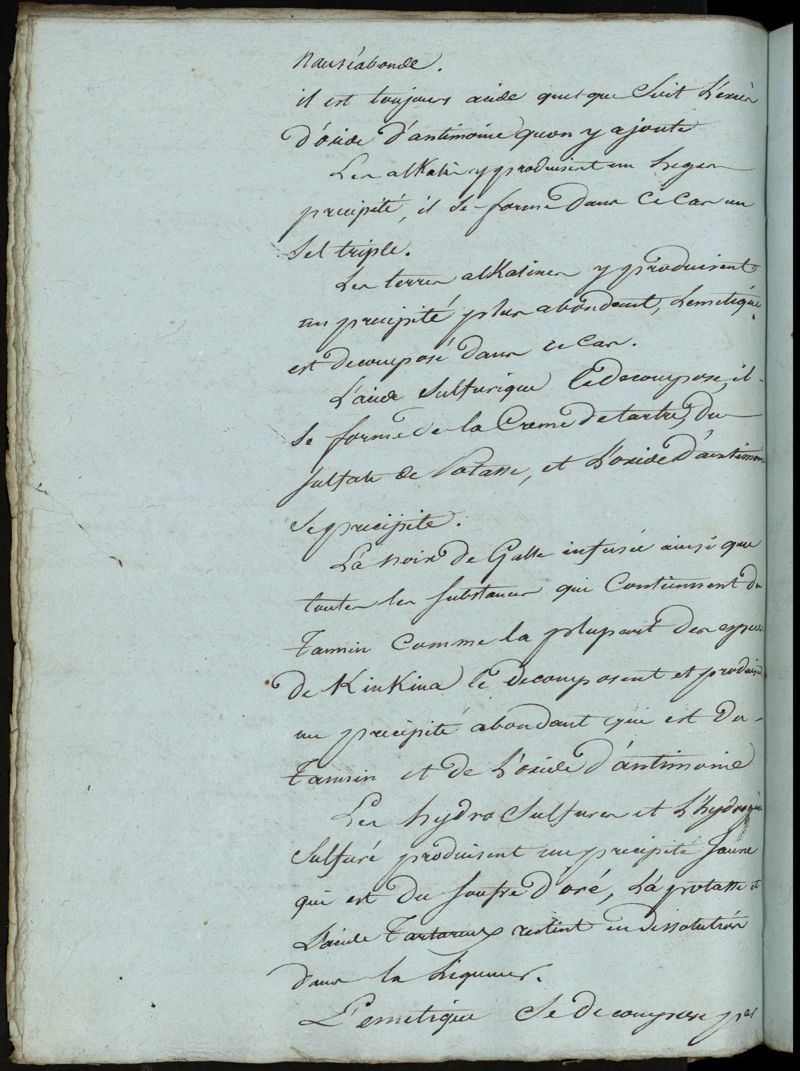 nauséabonde.
il est toujours acide quelque soit l'excès
d'oxide d'antimoine qu'on y ajoute
Les alkalis y produisent un leger
precipité, il se forme dans ce cas un
sel triple.
Les terres alkalines y produisent
un precipité plus abondant, l'emetique
est decomposé dans ce cas.
L'acide sulfurique le decompose, il
se forme de la Creme de tartre, du
sulfate de Potasse, et l'oxide d'antimoine
se precipite.
La noix de Galle infusée ainsi que
toutes les substances qui Contiennent du
Tannin comme la plupart des especes
de KinKina le decomposent et produisent
un precipité abondant qui est du
Tannin et de l'oxide d'antimoine
Les hydro sulfures et l'hydrogène
sulfuré produisent un precipité jaune
qui est du soufre doré, La potasse et
L'acide Tartareux restent en dissolution
dans la liqueur.
L'emetique se decompose par